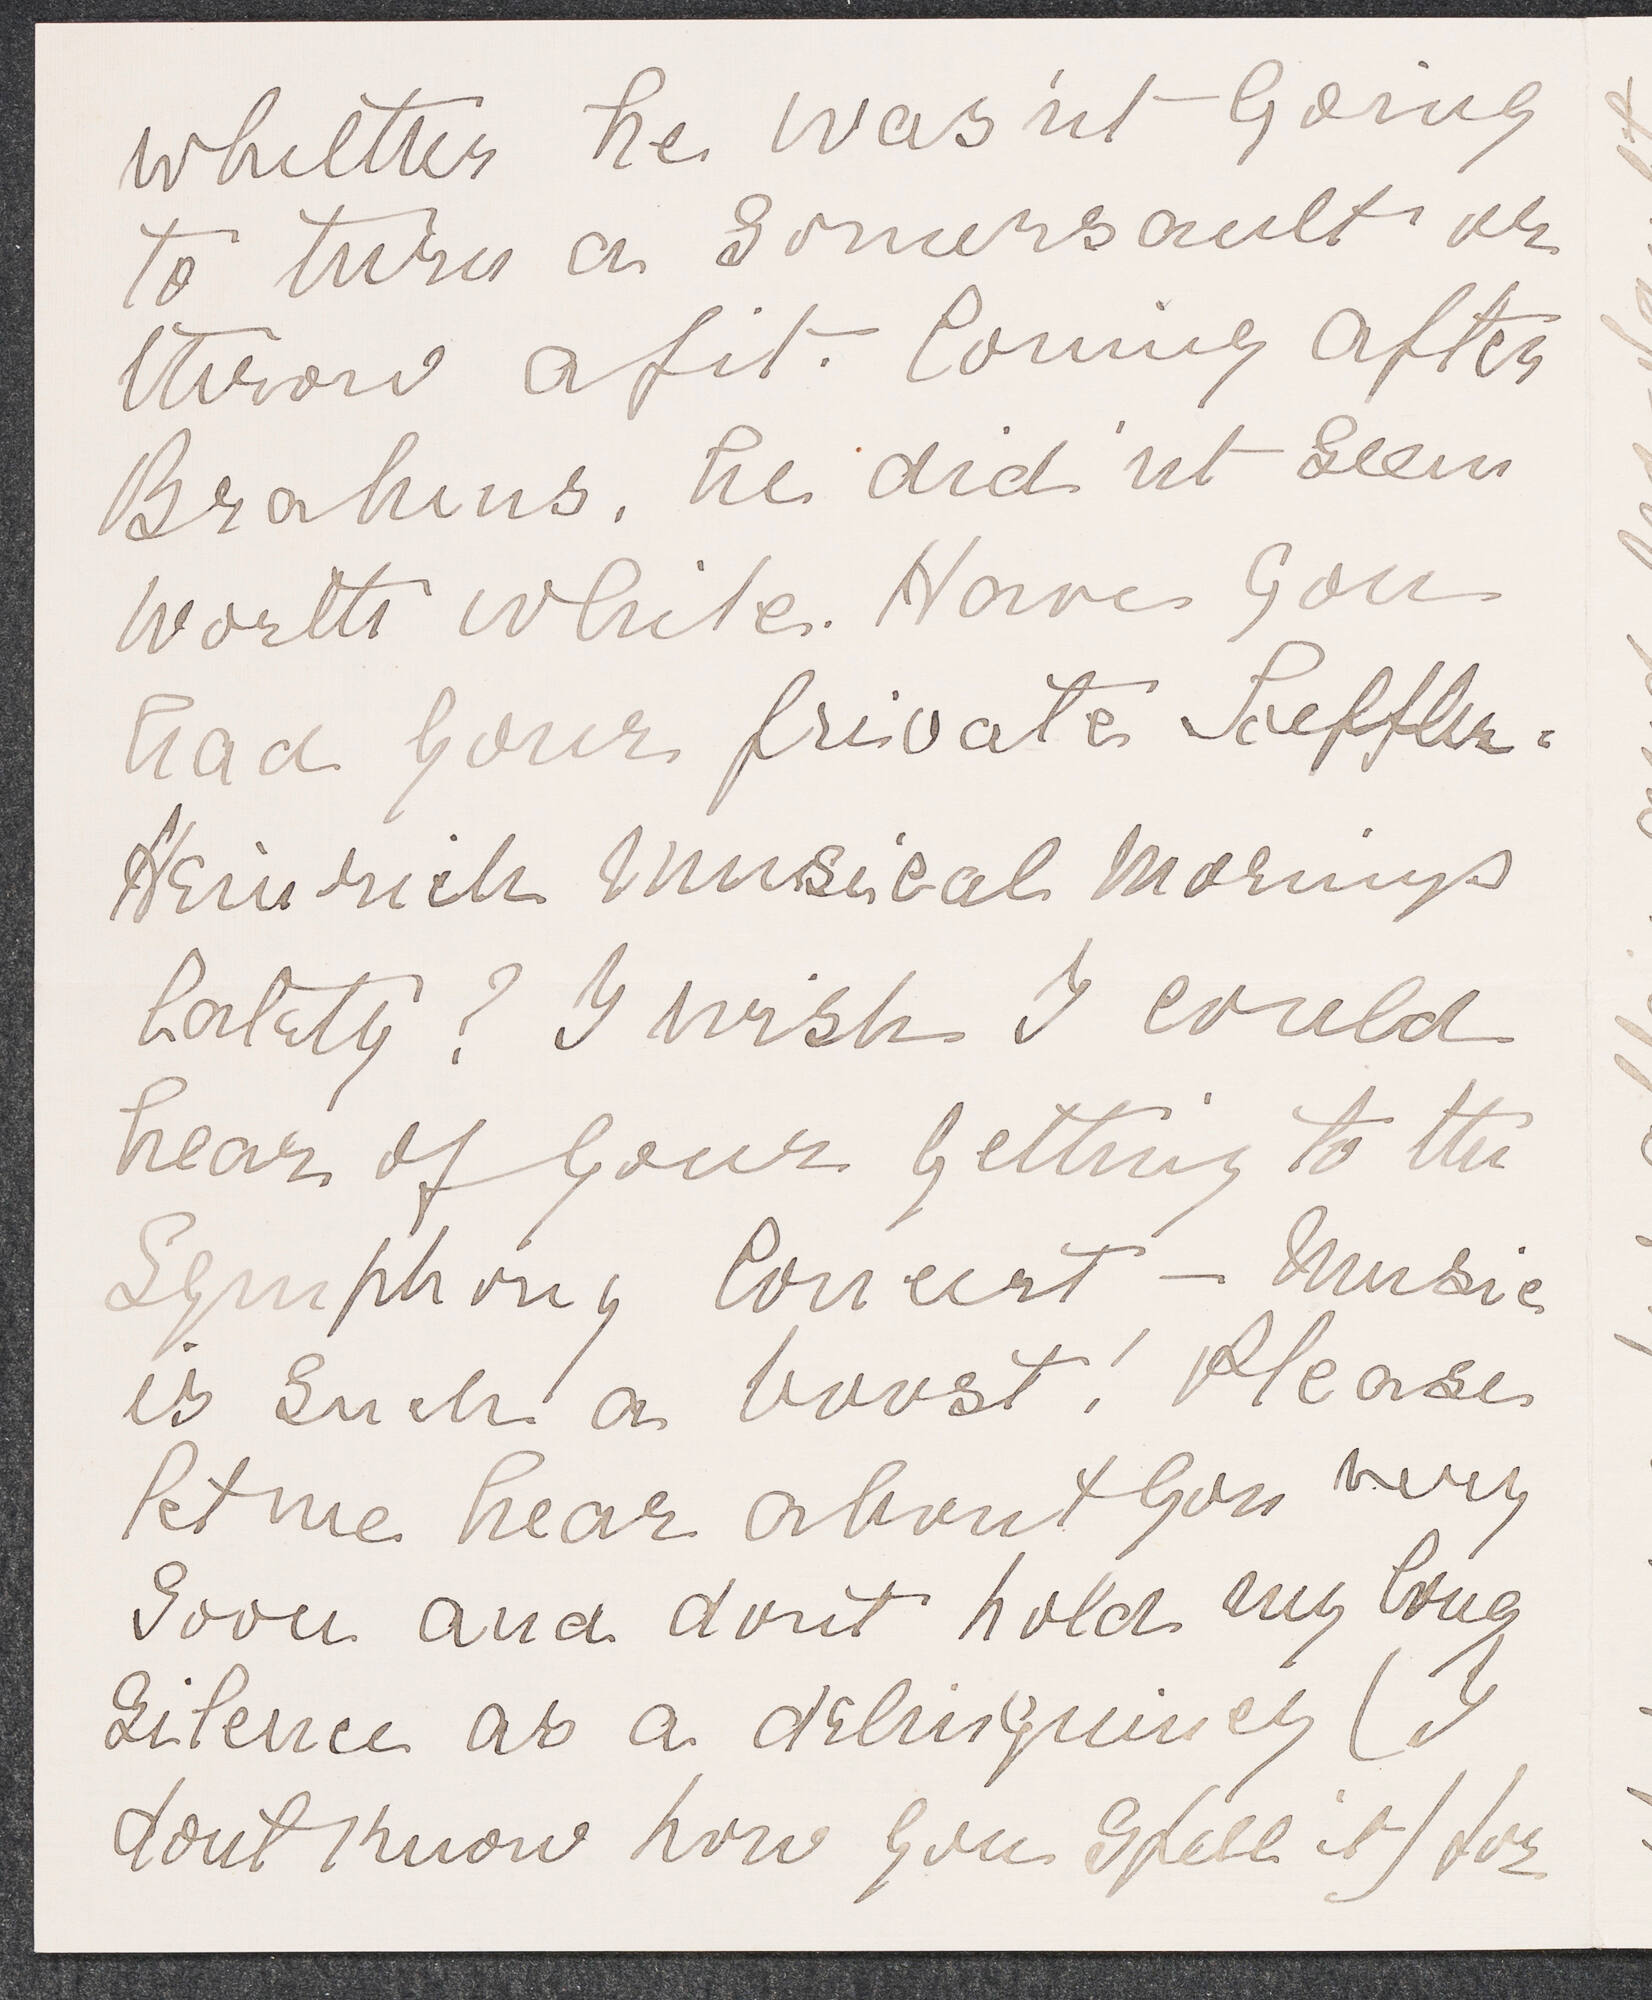 whether he was'nt going
to turn a somersault or
throw a fit. Coming after
Brahms, he did'nt seem
worth while. Have you
had your private Loeffler-
Heindrich musical mornings
lately? I wish I could
hear of your getting to the
Symphony Concert – Music
is such a boost! Please
let me hear about you very
soon and dont hold my long
silence as a delinquincy (I
dont know how you spell it) for